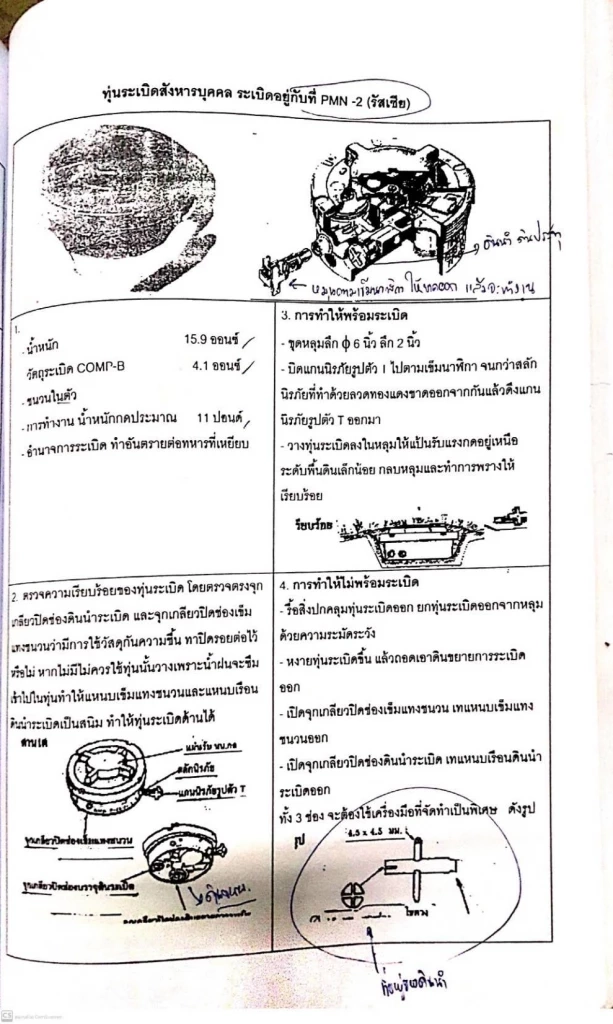 ทุ่นระเบิดสังหารบุคคล ระเบิดอยู่กับที่ PMN -2 (รัสเซีย)
1.
- น้ำหนัก 15.9 ออนซ์
วัตถุระเบิด COMP-B 4.1 ออนซ์
- ชนวนในตัว
- การทำงาน น้ำหนักกดประมาณ 11 ปอนด์
- อำนาจการระเบิด ทำอันตรายต่อทหารที่เหยียบ
3. การทำให้พร้อมระเบิด
- ขุดหลุมลึก ϕ 6 นิ้ว ลึก 2 นิ้ว
- บิดแกนนิรภัยรูปตัว I ไปตามเข็มนาฬิกา จนกว่าสลัก
นิรภัยที่ทำด้วยลวดทองแดงขาดออกจากกันแล้วดึงแกน
นิรภัยรูปตัว T ออกมา
- วางทุ่นระเบิดลงในหลุมให้แป้นรับแรงกดอยู่เหนือ
ระดับพื้นดินเล็กน้อย กลบหลุมและทำการพรางให้
เรียบร้อย
เรียบร้อย
2. ตรวจความเรียบร้อยของทุ่นระเบิด โดยตรวจตรงจุก
เกลียวปิดช่องดินนำระเบิด และจุกเกลียวปิดช่องเข็ม
แทงชนวนว่ามีการใช้วัสดุกันความชื้น ทาปิดรอยต่อไว้
หรือไม่ หากไม่มีไม่ควรใช้ทุ่นนั้นวางเพราะน้ำฝนจะซึม
เข้าไปในทุ่นทำให้แหนบเข็มแทงชนวนและแหนบเรือน
ดินนำระเบิดเป็นสนิม ทำให้ทุ่นระเบิดด้านได้
สลักนิรภัย
แกนนิรภัยรูปตัว T
จุกเกลียวปิดช่องเข็มแทงชนวน
จุกเกลียวปิดช่องบรรจุดินระเบิด
4. การทำให้ไม่พร้อมระเบิด
- รื้อสิ่งปกคลุมทุ่นระเบิดออก ยกทุ่นระเบิดออกจากหลุม
ด้วยความระมัดระวัง
- หงายทุ่นระเบิดขึ้น แล้วถอดเอาดินขยายการระเบิด
ออก
- เปิดจุกเกลียวปิดช่องเข็มแทงชนวน เทแหนบเข็มแทง
ชนวนออก
- เปิดจุกเกลียวปิดช่องดินนำระเบิด เทแหนบเรือนดินนำ
ระเบิดออก
ทั้ง 3 ช่อง จะต้องใช้เครื่องมือที่จัดทำเป็นพิเศษ ดังรูป
รูป
4.5 x 4.5 มม.
ไขควง